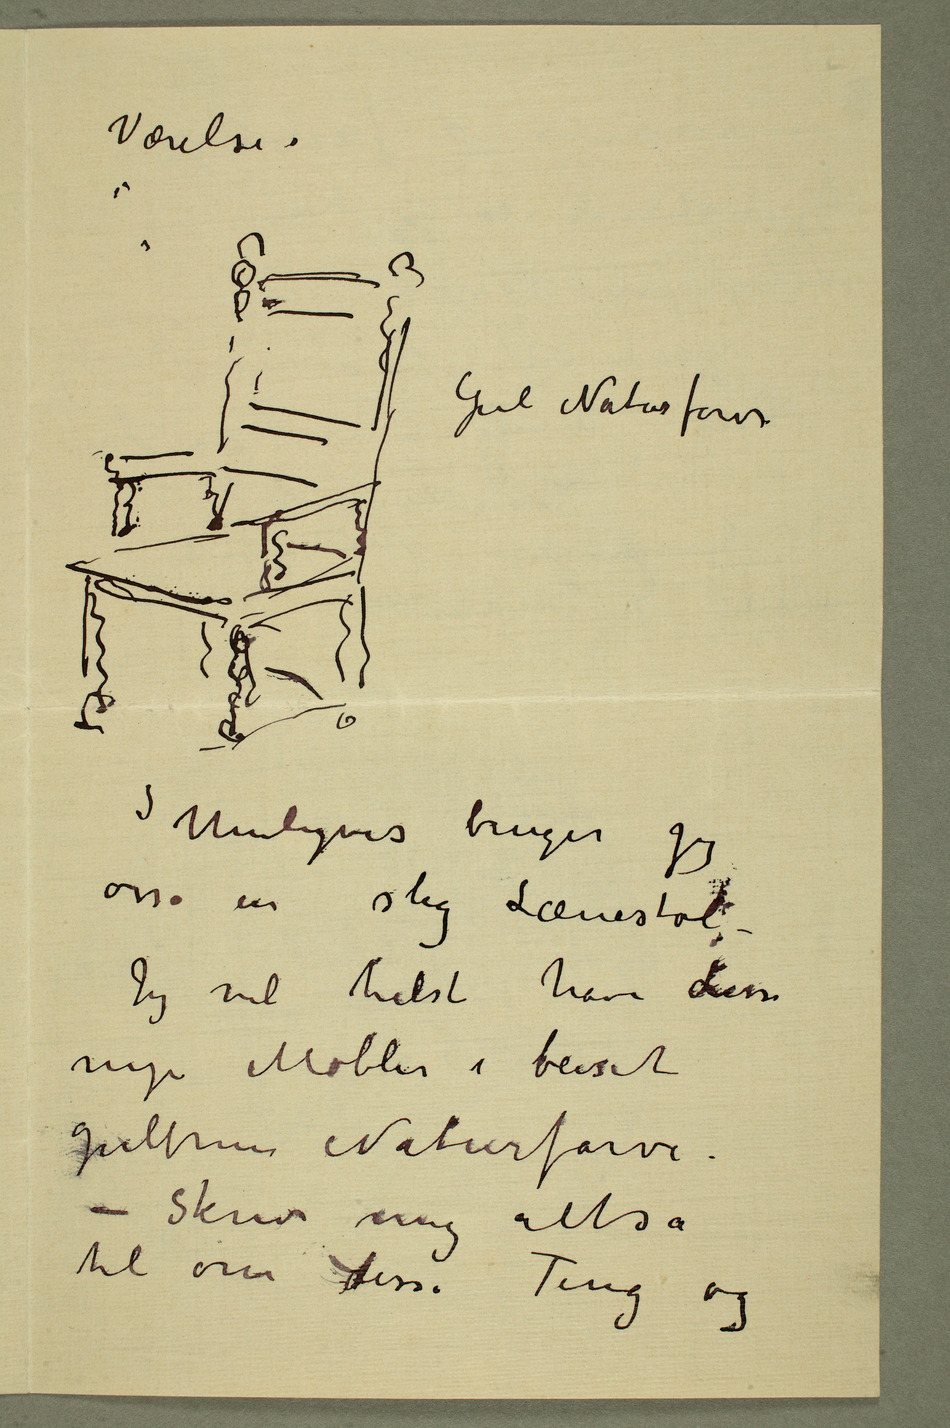 Værelse.
Gul Naturfarve
Muligvis bruger jeg
osso en slig Lænestol –
Jeg vil helst have disse
nye Møbler i beiset
gulbrun Naturfarve.
– Skriv mig altsa
til om disse Ting og